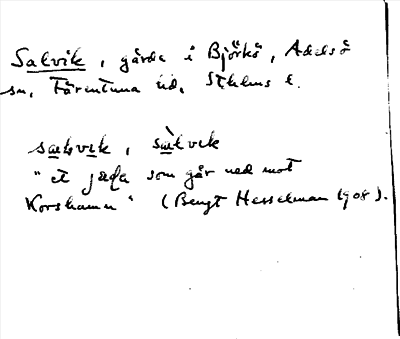 Salvik, gärde i Björkö, Adelsö
sn, Färentuna hd, Sthlms l.
sælvik, sælvek
"et jæḍa som går ned mot
Korshamn" (Bengt Hesselman 1908).